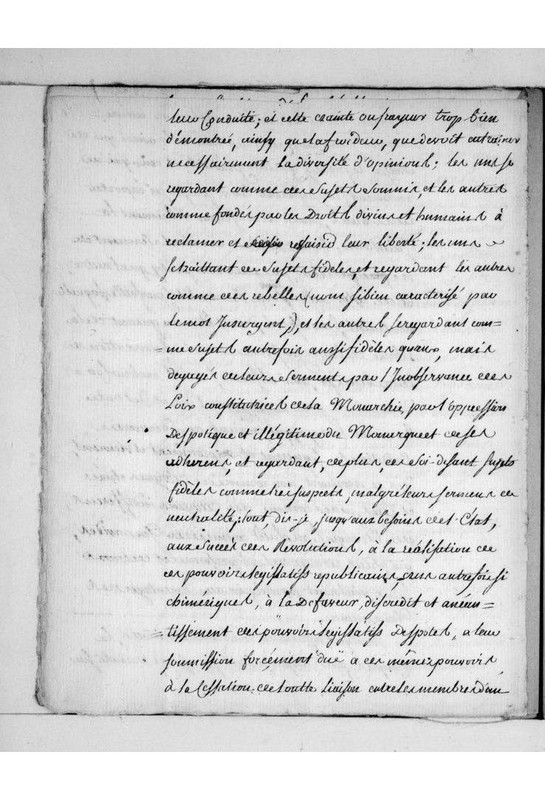 leur Conduite; et cette crainte ou frayeur trop bien
démontrée, ainsy que la froideur, que devoit entrainer
necessairement la diversité d'opinions; les uns se
regardant comme des sujets soumis, et les autres
comme fondés par les Droits divins et humains à
reclamer et ressaisir leur liberté; les uns
se traittant de sujets fideles, et regardant les autres
comme des rebelles (nom si bien caracterisé par
le mot Insurgent,) et les autres se regardant com=
=me sujets autrefois aussi fidèles qu'eux, mais
degagés de leurs serments par l'Inobservance des
Loix constitutrices de la Monarchie, par l'oppression
Despotique et illégitime du Monarque et de ses
adherens, et regardant, de plus, ces soi-disant sujets
fidèles comme très suspects, malgré leurs sermens de
neutralité; tout, dis-je, jusqu'aux besoins de l'Etat,
aux succès des Revolutions, à la réalisation de
ces pouvoirs legislatifs republicains, eux autrefois si
chimériques, à la Defaveur, discredit et anéan=
=tissement des pouvoirs legislatifs Despotes, a leur
soumission forcément duë a ces mêmes pouvoirs
à la Cessation de toutte liaison entre les membres d'un